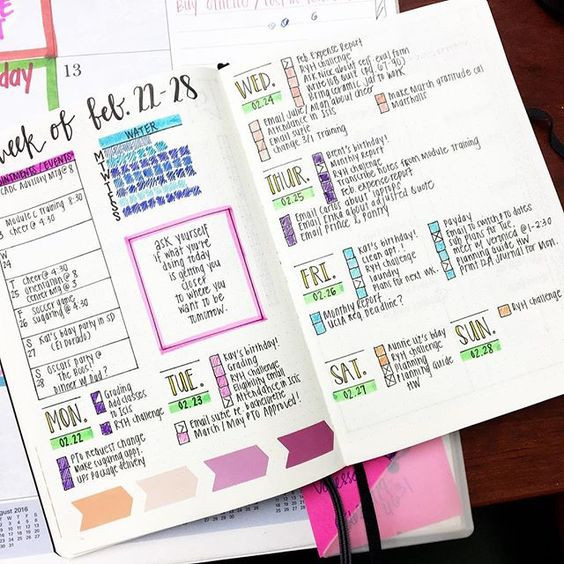 13
Week of Feb. 22-28
APPOINTMENTS/EVENTS
CADC Advisory Mtg @ 8
Module C Training 8:30
Cheer @ 4:30
W
24
T
25
Cheer @ 4:30
Orientation @ 8
Center Mtg @ 3
F
26
Soccer game
Sugaring @ 4:30
S
27
Kai's bday party in SD
(El Dorado)
S
28
Oscars party @
The Roos!
Dinner w/ Dad?
WATER
M
T
W
T
F
S
S
ask yourself
if what you're
doing today
is getting you
closer
to where you
want to be
tomorrow.
MON.
02.22
Grading
Add classes
to ISIS
RYH Challenge
PTO Request Change
Make sugaring appt.
UPS package delivery
TUE.
02.23
Kay's birthday!
Grading
RYH Challenge
Eligibility Email
Attendance in ISIS
Email Suzie re:
March/May PTO Approved!
WED.
02.24
Feb Expense Report
RYH Challenge
Ask Nice about self-eval form
Bring ceramic jar to work
Email Julie/Alan about cheer
Attendance in ISIS
Email Suzie
Change 3/1 Training
Make March gratitude cal
Marshalls
THUR.
02.25
Bren's birthday!
Monthly Report
RYH Challenge
Transcribe notes from Module Training
Feb. Expense report
Email Chris about laptops
Email Erika about adjusted quote
Email Prince is Pantry
FRI.
02.26
Kat's birthday!
Clean apt.!
RYH Challenge
Laundry
Plans for next wk.
Monthly Report
UCLA Req. Deadline?
Payday
Email to switch TO dates
Sub plans for Tue.
Meet w/ Veronica @ 1-2:30
Planning Guide HW
Print I.A. Journal for Mon.
SAT.
02.27
Auntie Liz's bday
RYH Challenge
Planning
Planning Guide
HW
SUN.
02.28
RYH Challenge
August 2016